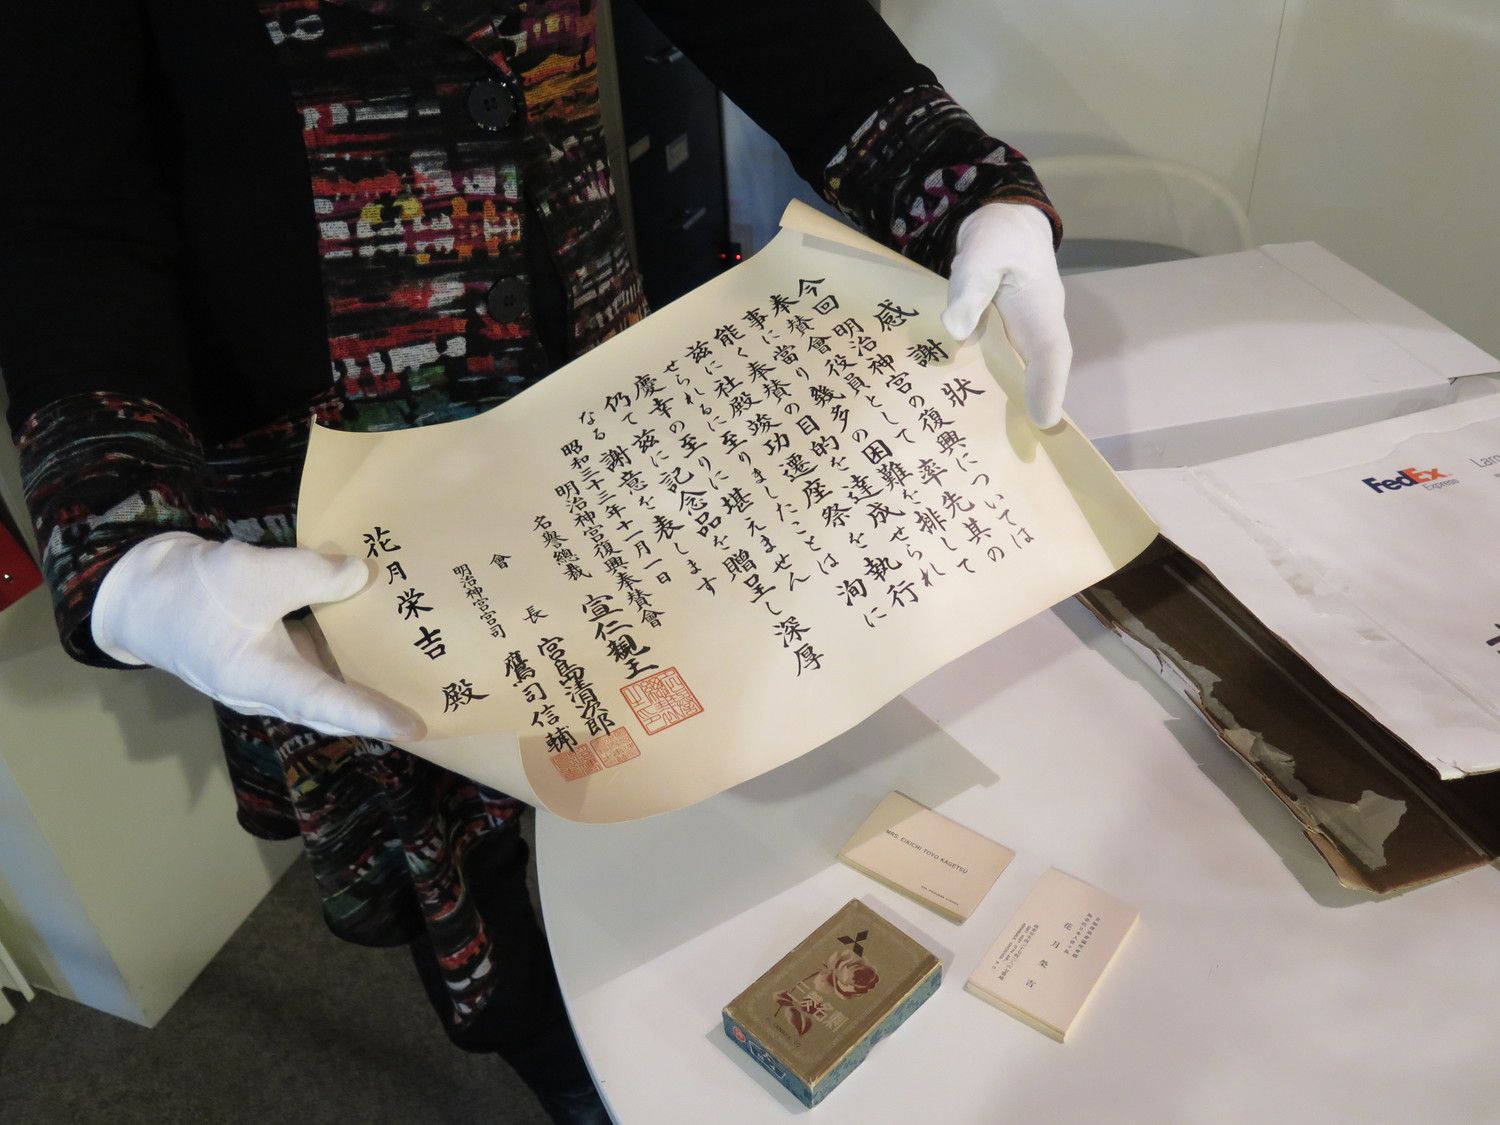 感謝狀
今回明治神宮の復興については
奉賛會役員として率先其の
事に當り幾多の困難を排して
能く奉賛の目的を達成せられ
茲に社殿竣功遷座祭を執行
せられるに至りましたことは洵に
慶幸の至りに堪えません
仍て茲に記念品を贈呈し深厚
なる謝意を表します
昭和三十三年十一月一日
明治神宮復興奉賛會
名譽總裁 宣仁親王
會長 宮島清次郎
明治神宮宮司 鷹司信輔
花月栄吉殿
FedEx
Express
MRS. EIKICHI TOYO KAGETSU
花月榮吉